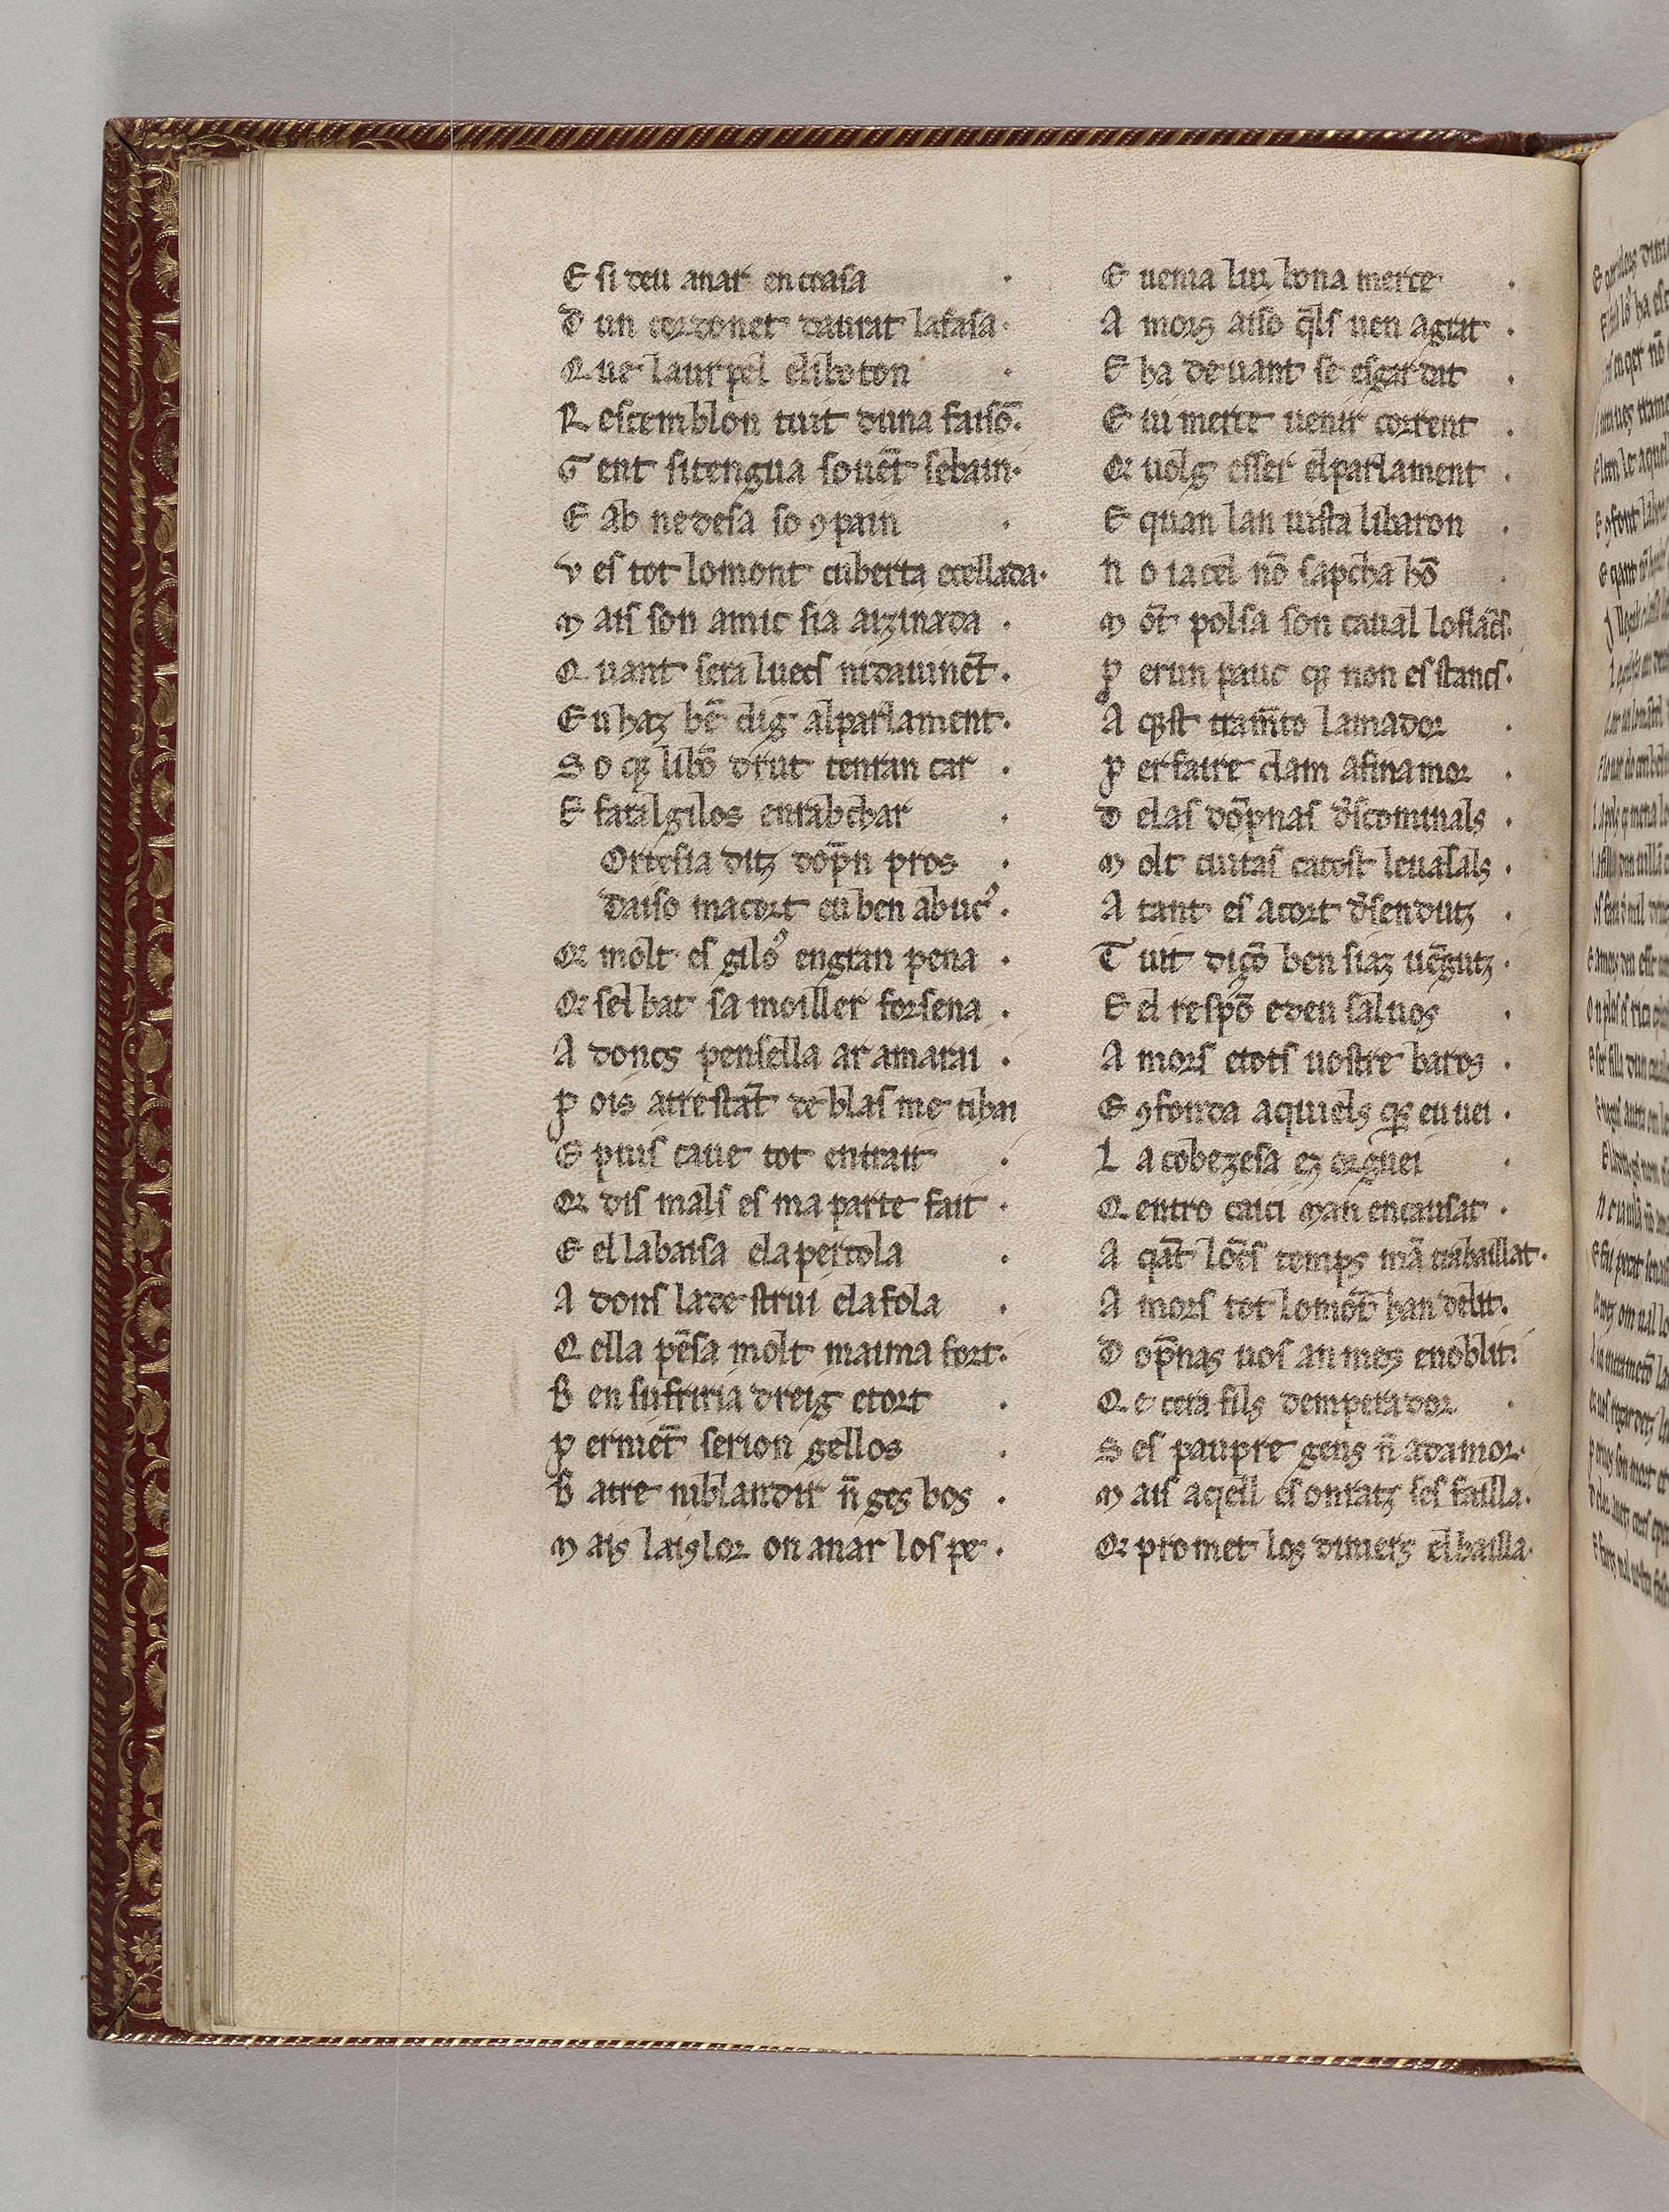 E si deu anar en ceasa ·
D un cordonet daurat lafasa·
Q ue laur pel eliboton ·
R escemblon tuit duna faisō·
G ent sitengua souēt sebain·
E ab nedesa so ꝯpain ·
V es tot lomont cuberta ecellada·
M ais son amic sia aizinada ·
Q uant sera luecs nidauinēt·
E u haz bē dig alparlament·
S o qe libō drut tenran car ·
E farāl gilos enrabchar ·
Ortesia ditz dop̄n pros ·
Daiso macort eu ben abuc᾿·
Qe molt es gilo᾿ engran pena ·
Qe sel bat sa moiller forsena ·
A doncs pensella ar amarai ·
P ois atrestāt de blasme tibai
E puis caue tot entrait ·
Qe dis mals es ma parte fait ·
E el labaisa ela percola ·
A dons lade strui ela fola ·
Q ella pēsa molt maima fort·
B en sufriria dreig etort ·
P erniēt serion gellos ·
B atre niblandir n̄ ges bos ·
M ais laislor on anar los pe ·
E uenia lur bona merce ·
A mors aiso q̄ls uen agrat ·
E ha deuant se esgardat ·
E ui merce uenir corrent ·
Qe uolg esser elparlament ·
E quan lan uista libaron ·
N o ia cel nō sapcha hō ·
M ōt polsa son caual losflācs·
P erun pauc qe non es stancs·
A qest tram̄to lamador ·
P erfaire clam afinamor ·
D elas dōpnas descominals ·
M olt ciutas catost leuasals ·
A tant es acort desendutz ·
T uit digō ben siaz uēgutz ·
E el respō e deu saluos ·
A mors etots uostre baros ·
E ꝯfonda aquels qe eu uei ·
L a cobezesa ez orguei ·
Q entro caici man encausat ·
A qāt lōcs temps mā trabaillat·
A mors tot lomōt han delit·
D op̄nas uos an mes enoblit·
Q e cera fils demperador ·
S es paupre gens n̄ adamor·
M ais aqell es onratz ses failla·
Qe promet los diners elbailla·